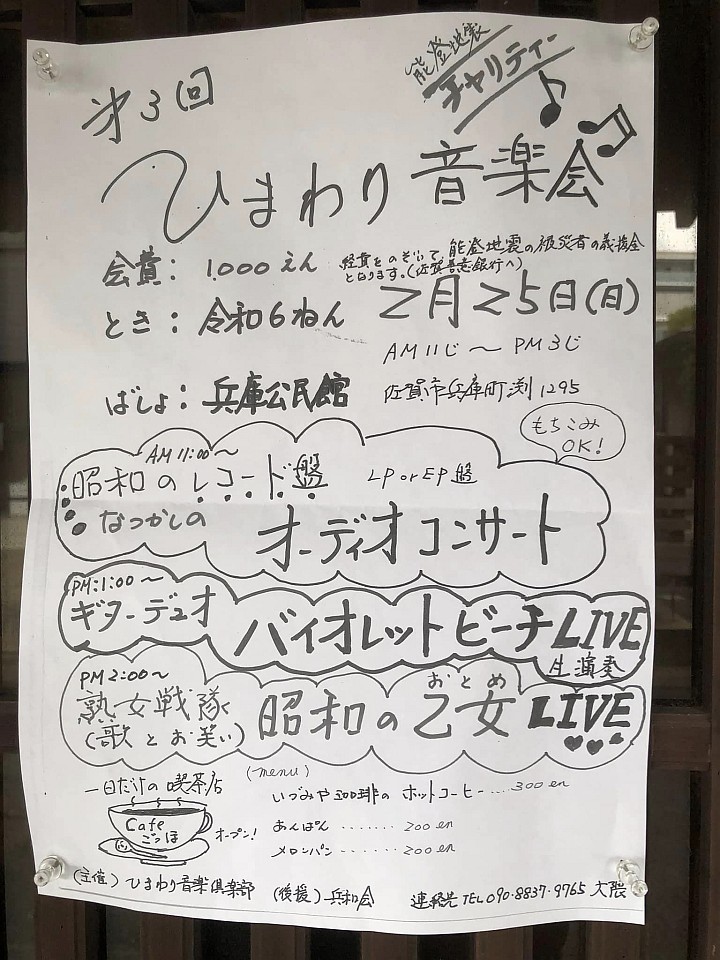 能登地震
チャリティー
第3回
ひまわり音楽会
会費：1000えん 経費をのぞいて、能登地震の被災者の義援金
となります。(佐賀善意銀行へ)
とき：令和6ねん 2月25日(日)
AM11じ～PM3じ
ばしょ：兵庫公民館 佐賀市兵庫町渕1295
もちこみ
OK!
AM11:00～
昭和のレコード盤 LPorEP盤
なつかしの オーディオコンサート
PM:1:00～
ギターデュオ バイオレットビーチLIVE
生演奏
PM2:00～
熟女戦隊 昭和の乙女 LIVE
おとめ
(歌とお笑い)
一日だけの喫茶店 (menu)
いづみや珈琲のホットコーヒー....300en
Cafe
ごっほ
オープン!
あんぱん.......200en
メロンパン.....200en
(主催)ひまわり音楽倶楽部 (後援)兵和会 連絡先TEL090-8837-9765大隈